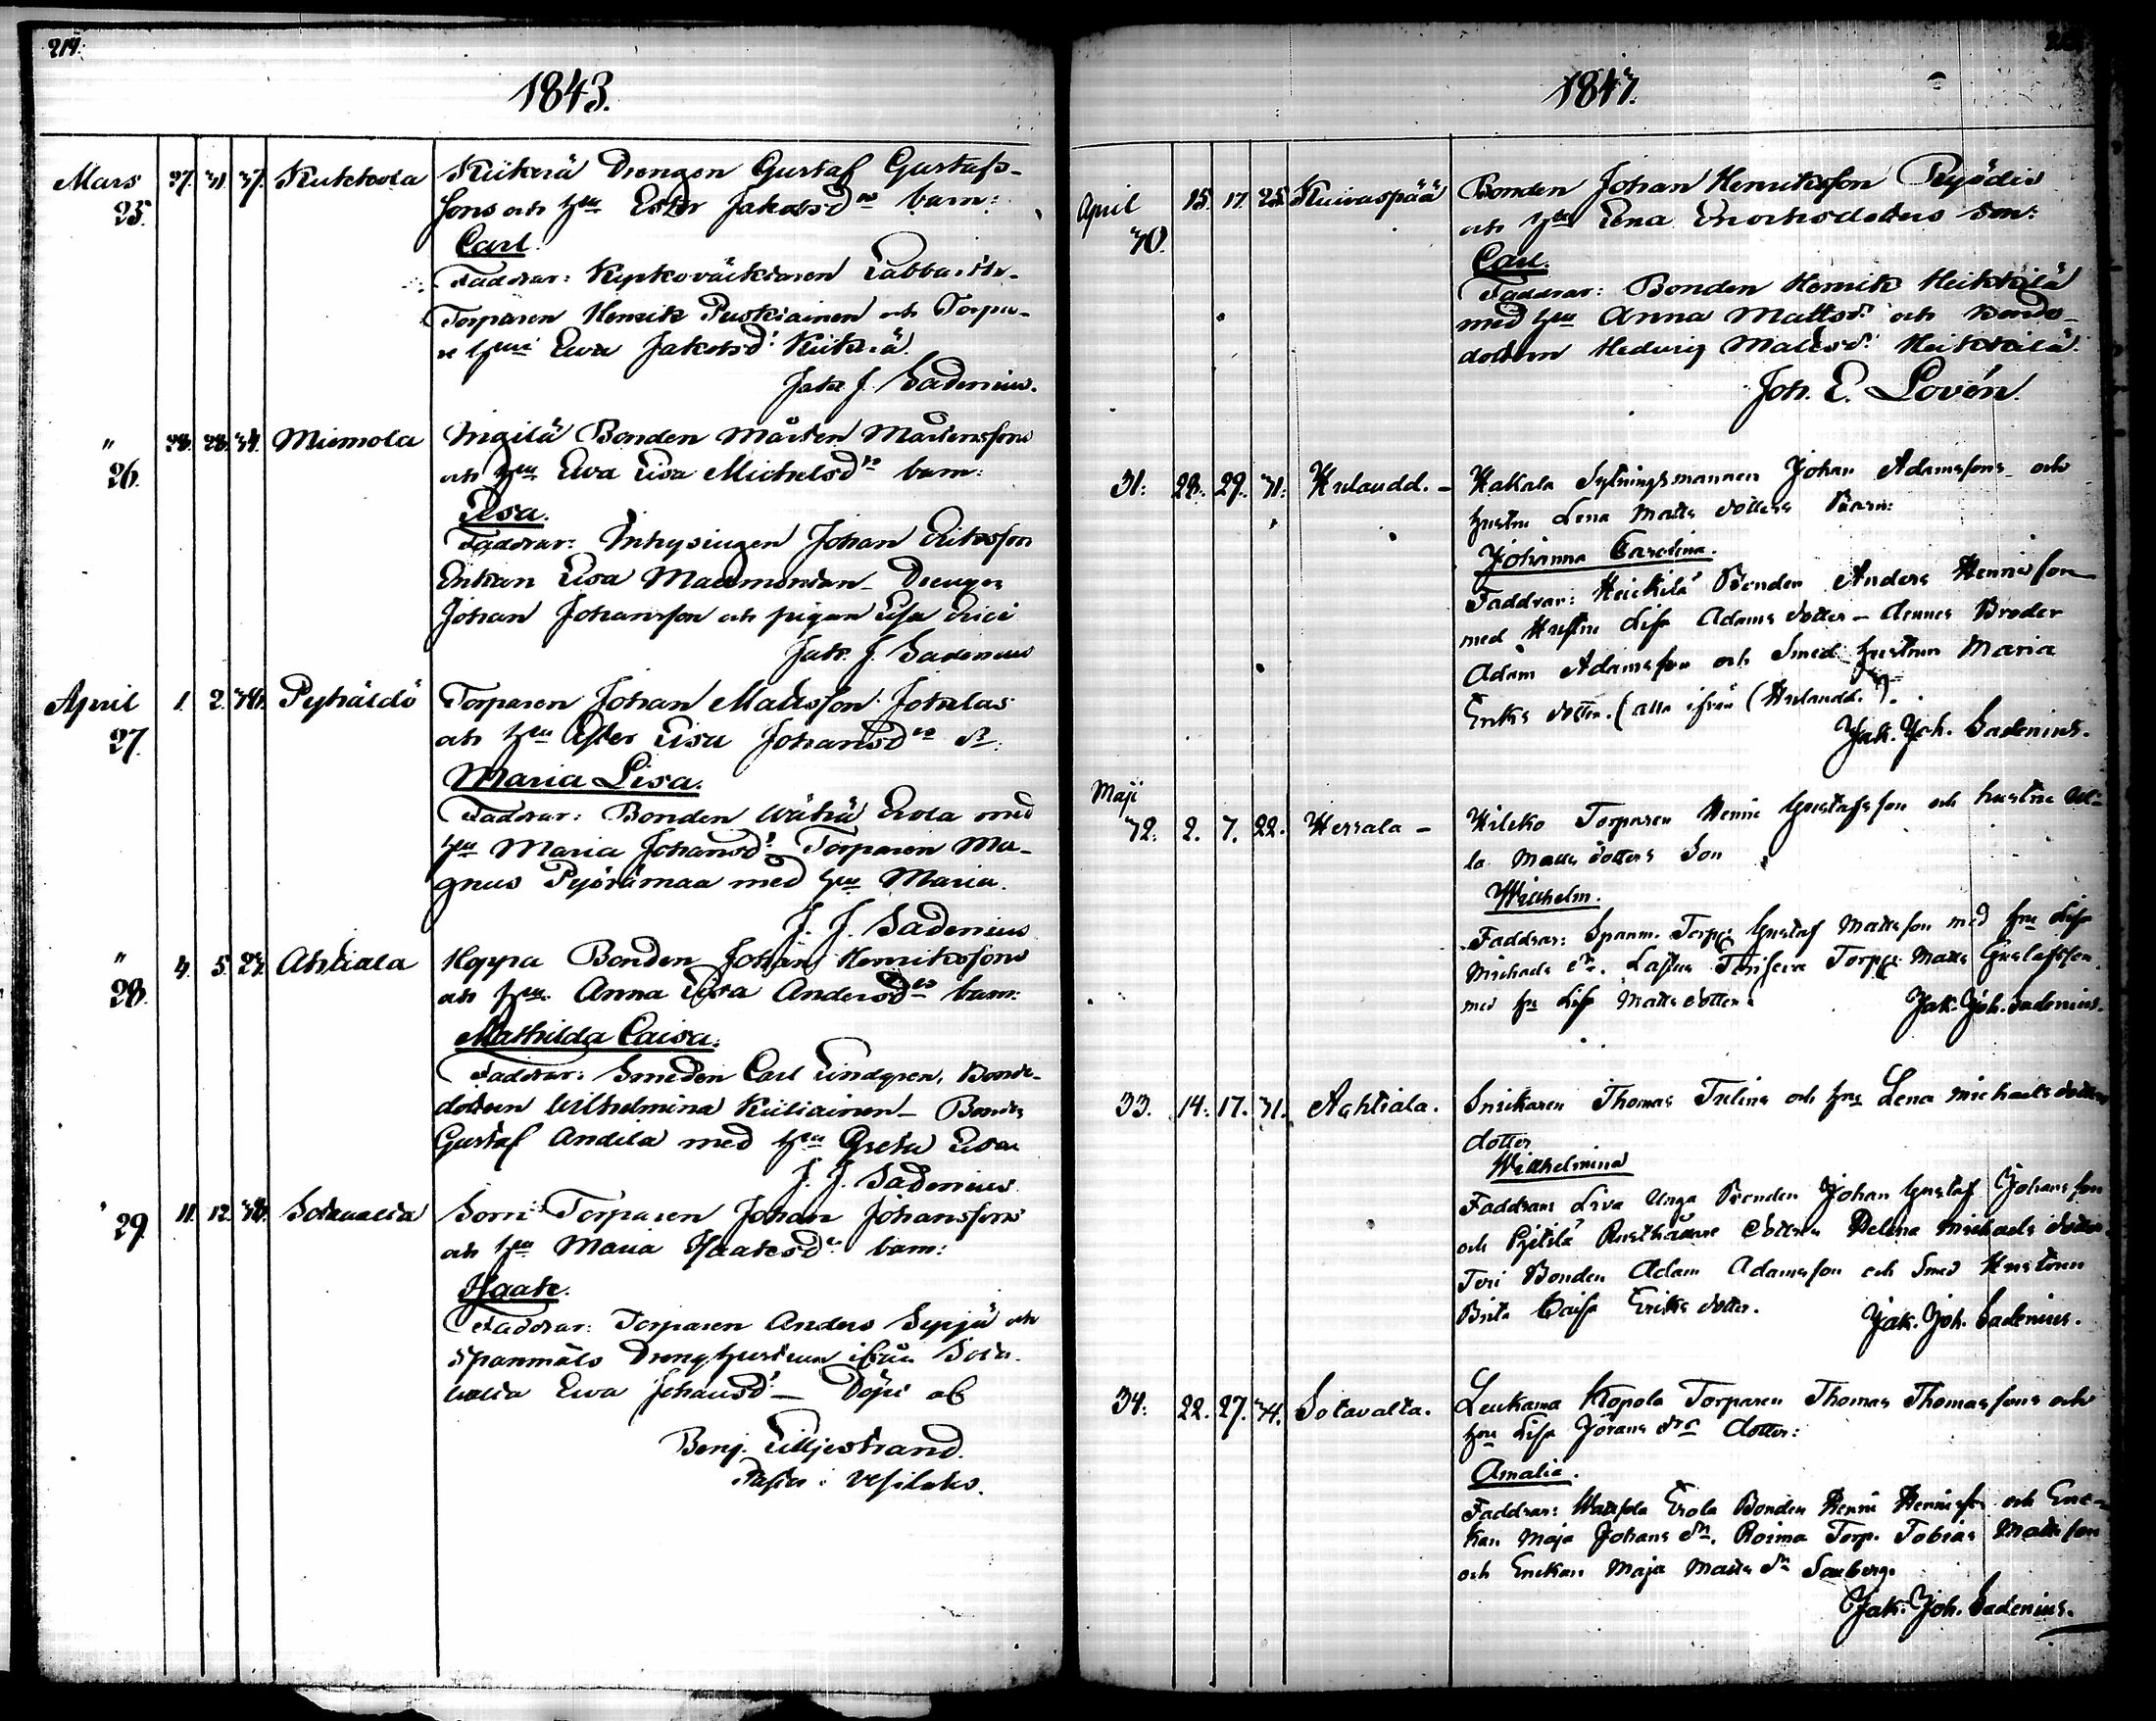 219.
1843.
Mars 27. 31. 37. Kukkola Kükerä Drengen Gustaf Gustafs-
25. sons och hru Ester Jakobsdrs barn:
Carl.
Faddrar:
Torparen Henrik Puskiainen och Torpa-
re hru Ewa Jakobsd:
Jak. J. Sadenius.
" 28. 28. 34. Miemola Ingilä Bonden Mårten Mårtenssons
26. och hru Ewa Lisa Michelsdrs barn:
Lisa.
Faddrar: Inhysingen Johan Eriksson
Enkan Lisa Drengen
Johan Johansson och pigan Lisa Erici
Jak. J. Sadenius
April 1. 2. Pyhäldö Torparen Johan Mattsson Johelas
27. och hru Lisa Johansdrs dr:
Maria Lisa.
Faddrar: Bonden Wähä Erola med
hru Maria Johansdr Torparen Ma-
gnus Pyörämaa med hru Maria.
J. J. Sadenius
" 4. 5. 27. Ahtiala Hoppa Bonden Johan Henrikssons
28. och hru Anna Lisa Andersdrs barn:
Mathilda Caisa.
Faddrar: Smeden Carl Lindgren, Bonde-
dottren Wilhelmina Küliainen – Bonden
Gustaf Andila med hru Greta Lisa
J. J. Sadenius
29. 11. 12. Sotavalta Sorri Torparen Johan Johanssons
och hru Maria Isaaksdrs barn:
Isaak.
Faddrar: Torparen Anders Seppä och
Spanmåls Dreng hustrun ifrån Sota-
valta Ewa Johansdr – Döpt af
Benj. Lilljestrand.
Pastor i Vesilaks.
1847.
April 15. 17. 25. Kuivaspää Bonden Johan Henriksson
30. och hru Lena Enochsdotters son:
Carl.
Faddrar: Bonden Henrik Heikkilä
med hru Anna Mattsd: och Bonde-
dottren Hedvig Mattsd: Heikkilä.
Joh. E. Lovén.
31: 28. 29. 31: Hulaudd. – Hakala Sytningsmannen Johan Adamssons och
hustru Lena Matts dotters Barn:
Johanna Carolina.
Faddrar: Heickilä Bonden Anders Henricsson
med Hustru Lisa Adams dotter – dennes Broder
Adam Adamsson och Smed hustrun Maria
Eriks dotter. (alla ifrån (Hulaudd.).
Jak. Joh. Sadenius.
Maji
32: 2. 7. 22. Herrala – Hileko Torparen Henric Gustafsson och hustru Ul-
la Matts dotters Son
Willhelm.
Faddrar: Spanm. Torp: Gustaf Mattsson med hru Lisa
Michels dr. Torp: Matts Gustafsson
med hru Lisa Matts dotter.
Jak. Joh. Sadenius.
33. 14. 17. 31. Aahtiala. Snickaren Thomas Tulins och hru Lena Michaels dotters
dotter
Willhelmina
Faddrar: unga Bonden Johan Gustaf Johansson
och Pjetilä Rusthållare dottren Helena Michaels dotter.
Bonden Adam Adamsson och Smed Hustrun
Brita Caisa Eriks dotter.
Jak. Joh. Sadenius.
34: 22. 27. 34. Sotavalta. Leukama Kopola Torparen Thomas Thomassons och
hru Lisa Jörans drs dotter:
Amalia.
Faddrar: Erola Bonden Henric Henricsson och Enc-
kan Maja Johans dr. Roima Torp. Tobias Mattsson
och Enckan Maja Matts dr
Jak. Joh. Sadenius.